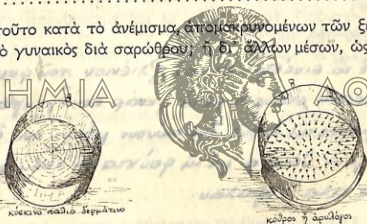 τοῦτο κατὰ τὸ ἀνέμισμα, ἀπομακρυνομένων τῶν
γυναικὸς διὰ σαρώθρου; ἢ δι' ἄλλων μέσων, ὡς
ΗΜΙΑ
ΑΘ
κόσκινο παλιό δερμάτινο
κόθρος ἢ ἀρυλόγος